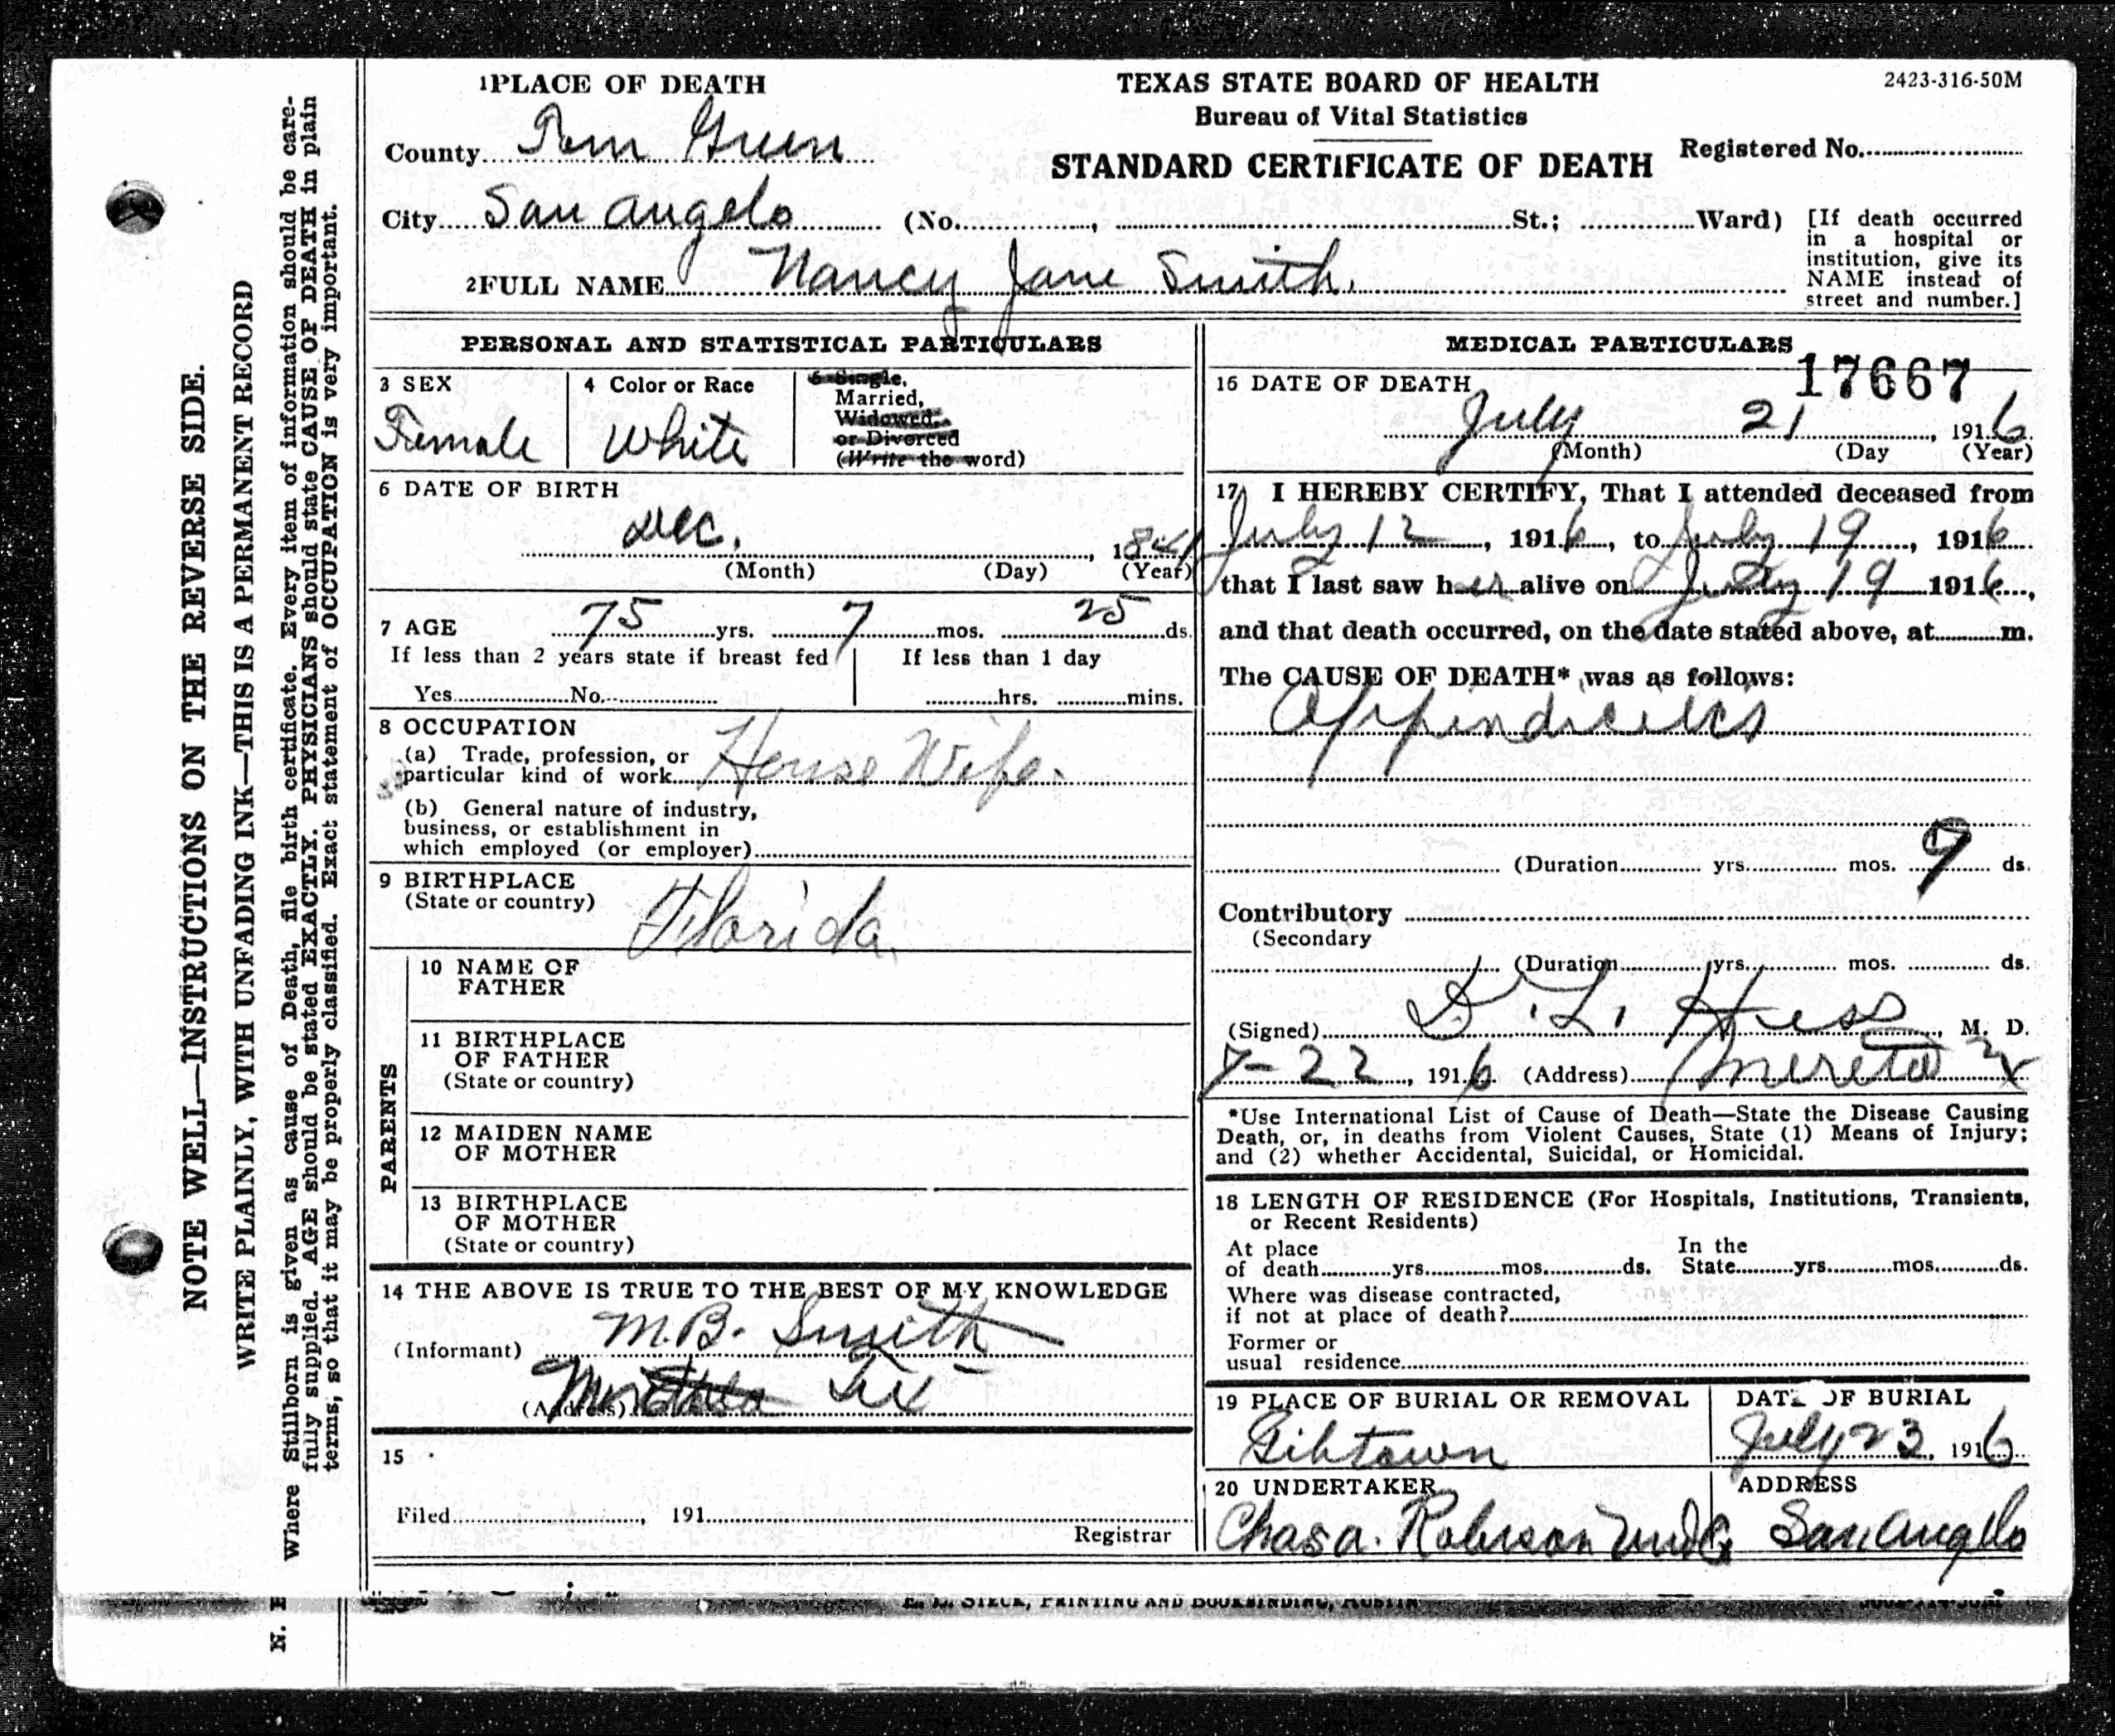 1 PLACE OF DEATH
TEXAS STATE BOARD OF HEALTH
2423-316-50M
Bureau of Vital Statistics
County Tom Green
STANDARD CERTIFICATE OF DEATH
Registered No.
City San Angelo (No. , St.; Ward)
[If death occurred in a hospital or institution, give its NAME instead of street and number.]
2 FULL NAME Nancy Jane Smith.
PERSONAL AND STATISTICAL PARTICULARS
3 SEX
Female
4 Color or Race
White
5 Single,
Married,
Widowed.
or Divorced
(Write the word)
6 DATE OF BIRTH
Dec. , 1841
(Month) (Day) (Year)
7 AGE 75 yrs. 7 mos. 25 ds.
If less than 2 years state if breast fed
Yes No.
If less than 1 day
hrs. mins.
8 OCCUPATION
(a) Trade, profession, or
particular kind of work House Wife.
(b) General nature of industry,
business, or establishment in
which employed (or employer)
9 BIRTHPLACE
(State or country) Florida.
PARENTS
10 NAME OF
FATHER
11 BIRTHPLACE
OF FATHER
(State or country)
12 MAIDEN NAME
OF MOTHER
13 BIRTHPLACE
OF MOTHER
(State or country)
14 THE ABOVE IS TRUE TO THE BEST OF MY KNOWLEDGE
(Informant) M.B. Smith
(Address) Tex
15
Filed , 191
Registrar
MEDICAL PARTICULARS
17667
16 DATE OF DEATH
July 21 , 1916
(Month) (Day (Year)
17 I HEREBY CERTIFY, That I attended deceased from
July 12 , 1916, to July 19 , 1916
that I last saw her alive on July 19 1916,
and that death occurred, on the date stated above, at m.
The CAUSE OF DEATH* was as follows:
Appindicitis
(Duration yrs. mos. 9 ds.
Contributory
(Secondary
(Duration yrs. mos. ds.
(Signed) L. Hess, M. D.
7-22, 1916 (Address) Mereta
*Use International List of Cause of Death—State the Disease Causing
Death, or, in deaths from Violent Causes, State (1) Means of Injury;
and (2) whether Accidental, Suicidal, or Homicidal.
18 LENGTH OF RESIDENCE (For Hospitals, Institutions, Transients,
or Recent Residents)
At place
of death yrs. mos. ds.
In the
State yrs. mos. ds.
Where was disease contracted,
if not at place of death?
Former or
usual residence
19 PLACE OF BURIAL OR REMOVAL
Gibtown
DATE OF BURIAL
July 23, 1916
20 UNDERTAKER
Chas A. Roberson
ADDRESS
San Angelo
NOTE WELL—INSTRUCTIONS ON THE REVERSE SIDE.
WRITE PLAINLY, WITH UNFADING INK—THIS IS A PERMANENT RECORD
Where Stillborn is given as cause of Death, file birth certificate. Every item of information should be care-
fully supplied. AGE should be stated EXACTLY. PHYSICIANS should state CAUSE OF DEATH in plain
terms, so that it may be properly classified. Exact statement of OCCUPATION is very important.
N.
E. L. STECK, PRINTING AND BOOKBINDING, AUSTIN